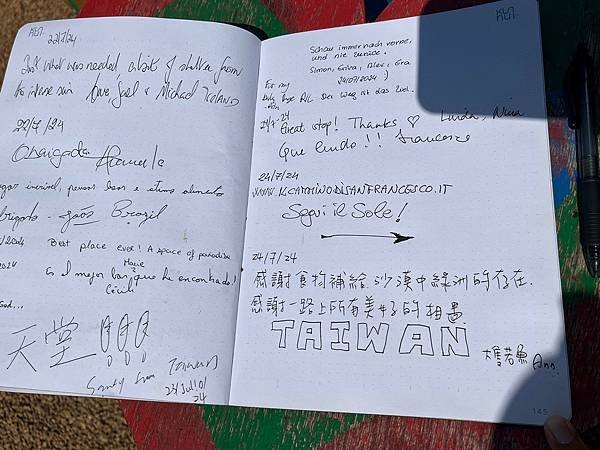 22/7/24
Just what was needed, a bit of shelter from
the intense sun. Anne, Joel & Michael ICELAND
22/7/24
Obrigada Manuela
Lugar incrível, pessoas boas e ótimos alimentos
Obrigado - João Brazil
Best place ever! A space of paradise
Es el mejor bar que he encontrado!
Marie
Cécile
天堂!!!
Sandy from Taiwan
23/Jul/01
24
Schau immer nach vorne,
und nie zurück.
(Simon, Erika, Alex, Gra
24/07/2024)
For my
Der Weg ist das Ziel.
24/7-24
Great stop! Thanks ♡ Linda, Nina
Que lindo!! Francesco
24/7/24
WWW.ILCAMMINODISANFRANCESCO.IT
Segui il Sole!
24/7/24
感謝食物補給,沙漠中綠洲的存在.
感謝一路上所有美好的相遇
TAIWAN
大隻若魚 Ann.
145